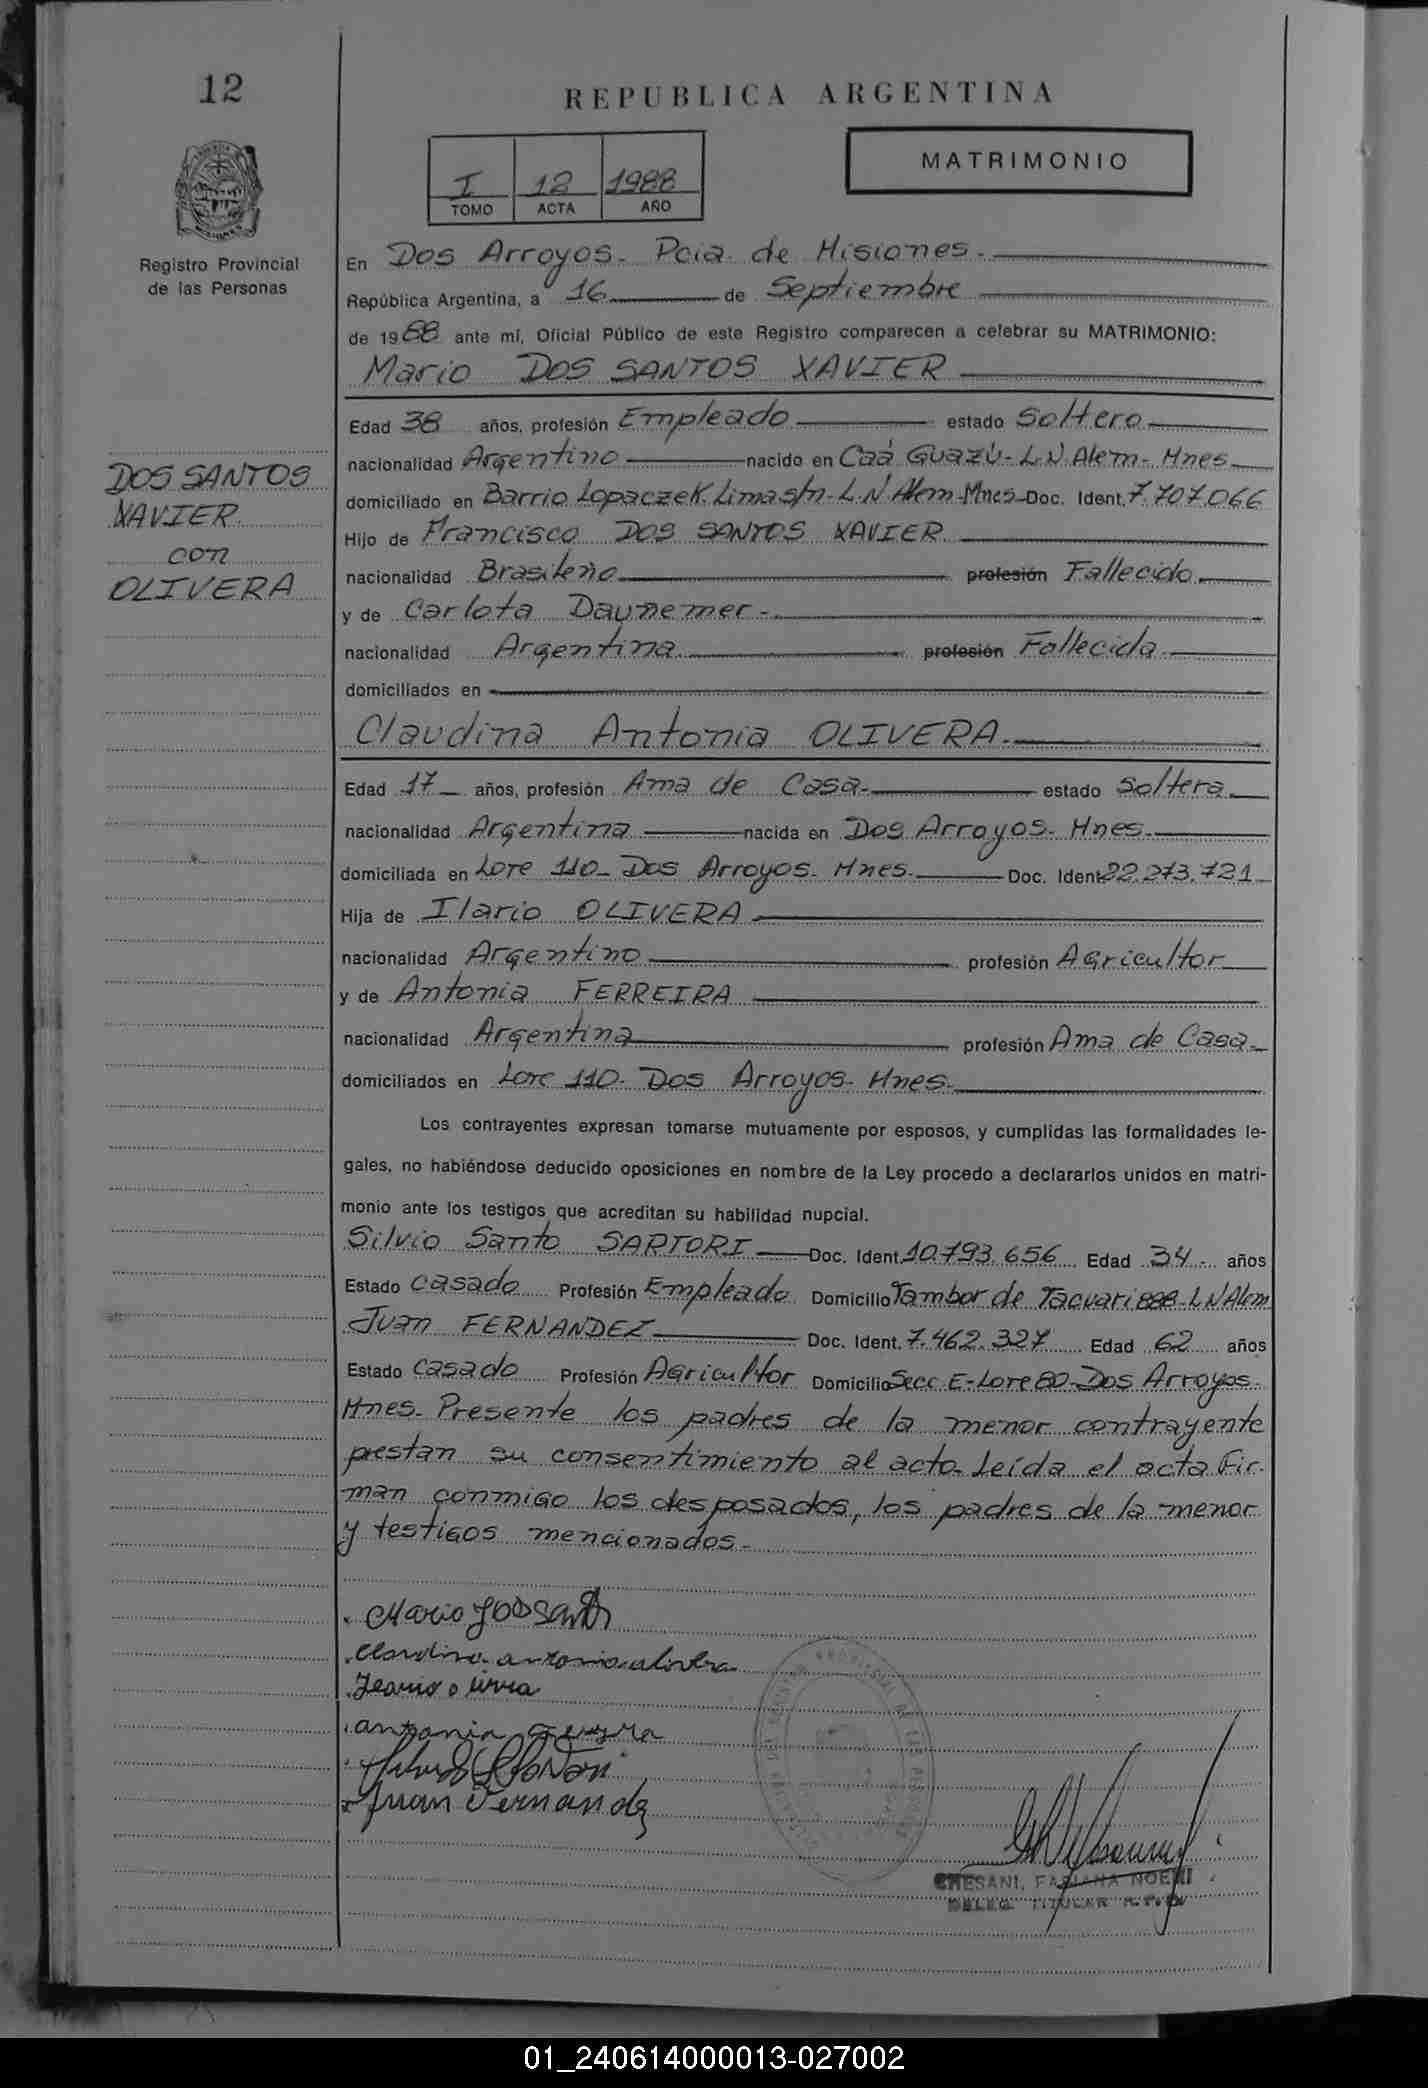 12
REPUBLICA ARGENTINA
MATRIMONIO
I 12 1988
TOMO ACTA AÑO
Registro Provincial
de las Personas
En Dos Arroyos - Pcia de Misiones.
República Argentina, a 16 de Septiembre
de 1988 ante mí, Oficial Público de este Registro comparecen a celebrar su MATRIMONIO:
Mario DOS SANTOS XAVIER
Edad 38 años, profesión Empleado estado Soltero
nacionalidad Argentino nacido en Caá Guazú - L.N. Alem - Mnes
domiciliado en Barrio Lopaczek. Lima s/n - L.N. Alem - Mnes - Doc. Ident. 7.707.066
DOS SANTOS
XAVIER
con
OLIVERA
Hijo de Francisco DOS SANTOS XAVIER
nacionalidad Brasileño profesión Fallecido
y de Carlota Daunemer -
nacionalidad Argentina profesión Fallecida
domiciliados en
Claudina Antonia OLIVERA
Edad 17 años, profesión Ama de Casa estado Soltera
nacionalidad Argentina nacida en Dos Arroyos - Mnes.
domiciliada en Lote 110 - Dos Arroyos - Mnes. Doc. Ident. 22.273.721
Hija de Ilario OLIVERA
nacionalidad Argentino profesión Agricultor
y de Antonia FERREIRA
nacionalidad Argentina profesión Ama de Casa
domiciliados en Lote 110 - Dos Arroyos - Mnes.
Los contrayentes expresan tomarse mutuamente por esposos, y cumplidas las formalidades le-
gales, no habiéndose deducido oposiciones en nombre de la Ley procedo a declararlos unidos en matri-
monio ante los testigos que acreditan su habilidad nupcial.
Silvio Santo SARTORI Doc. Ident. 10.793.656 Edad 34 años
Estado Casado Profesión Empleado Domicilio Tambor de Tacuari 888 - L N Alem
Juan FERNANDEZ Doc. Ident. 7.462.327 Edad 62 años
Estado Casado Profesión Agricultor Domicilio Secc. E - Lote 80 - Dos Arroyos -
Mnes - Presente los padres de la menor contrayente
prestan su consentimiento al acto. Leída el acta Fir-
man conmigo los desposados, los padres de la menor
y testigos mencionados -
Claudina antonia olivera
Juan Fernandez
CHESANI, FABIANA NOEMI
DELEG. TITULAR
01_240614000013-027002